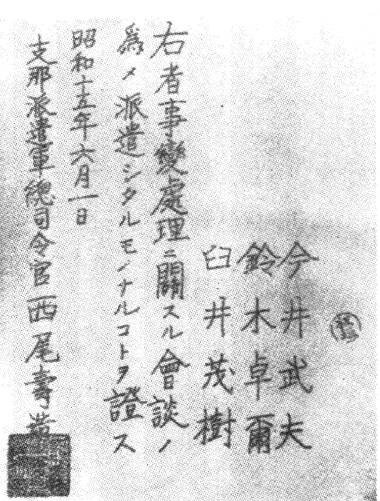 今井武夫
鈴木卓爾
臼井茂樹
右者事變處理ニ關スル會談ノ
為メ派遣シタルモノナルコトヲ證ス
昭和十五年六月一日
支那派遣軍總司令官西尾壽造